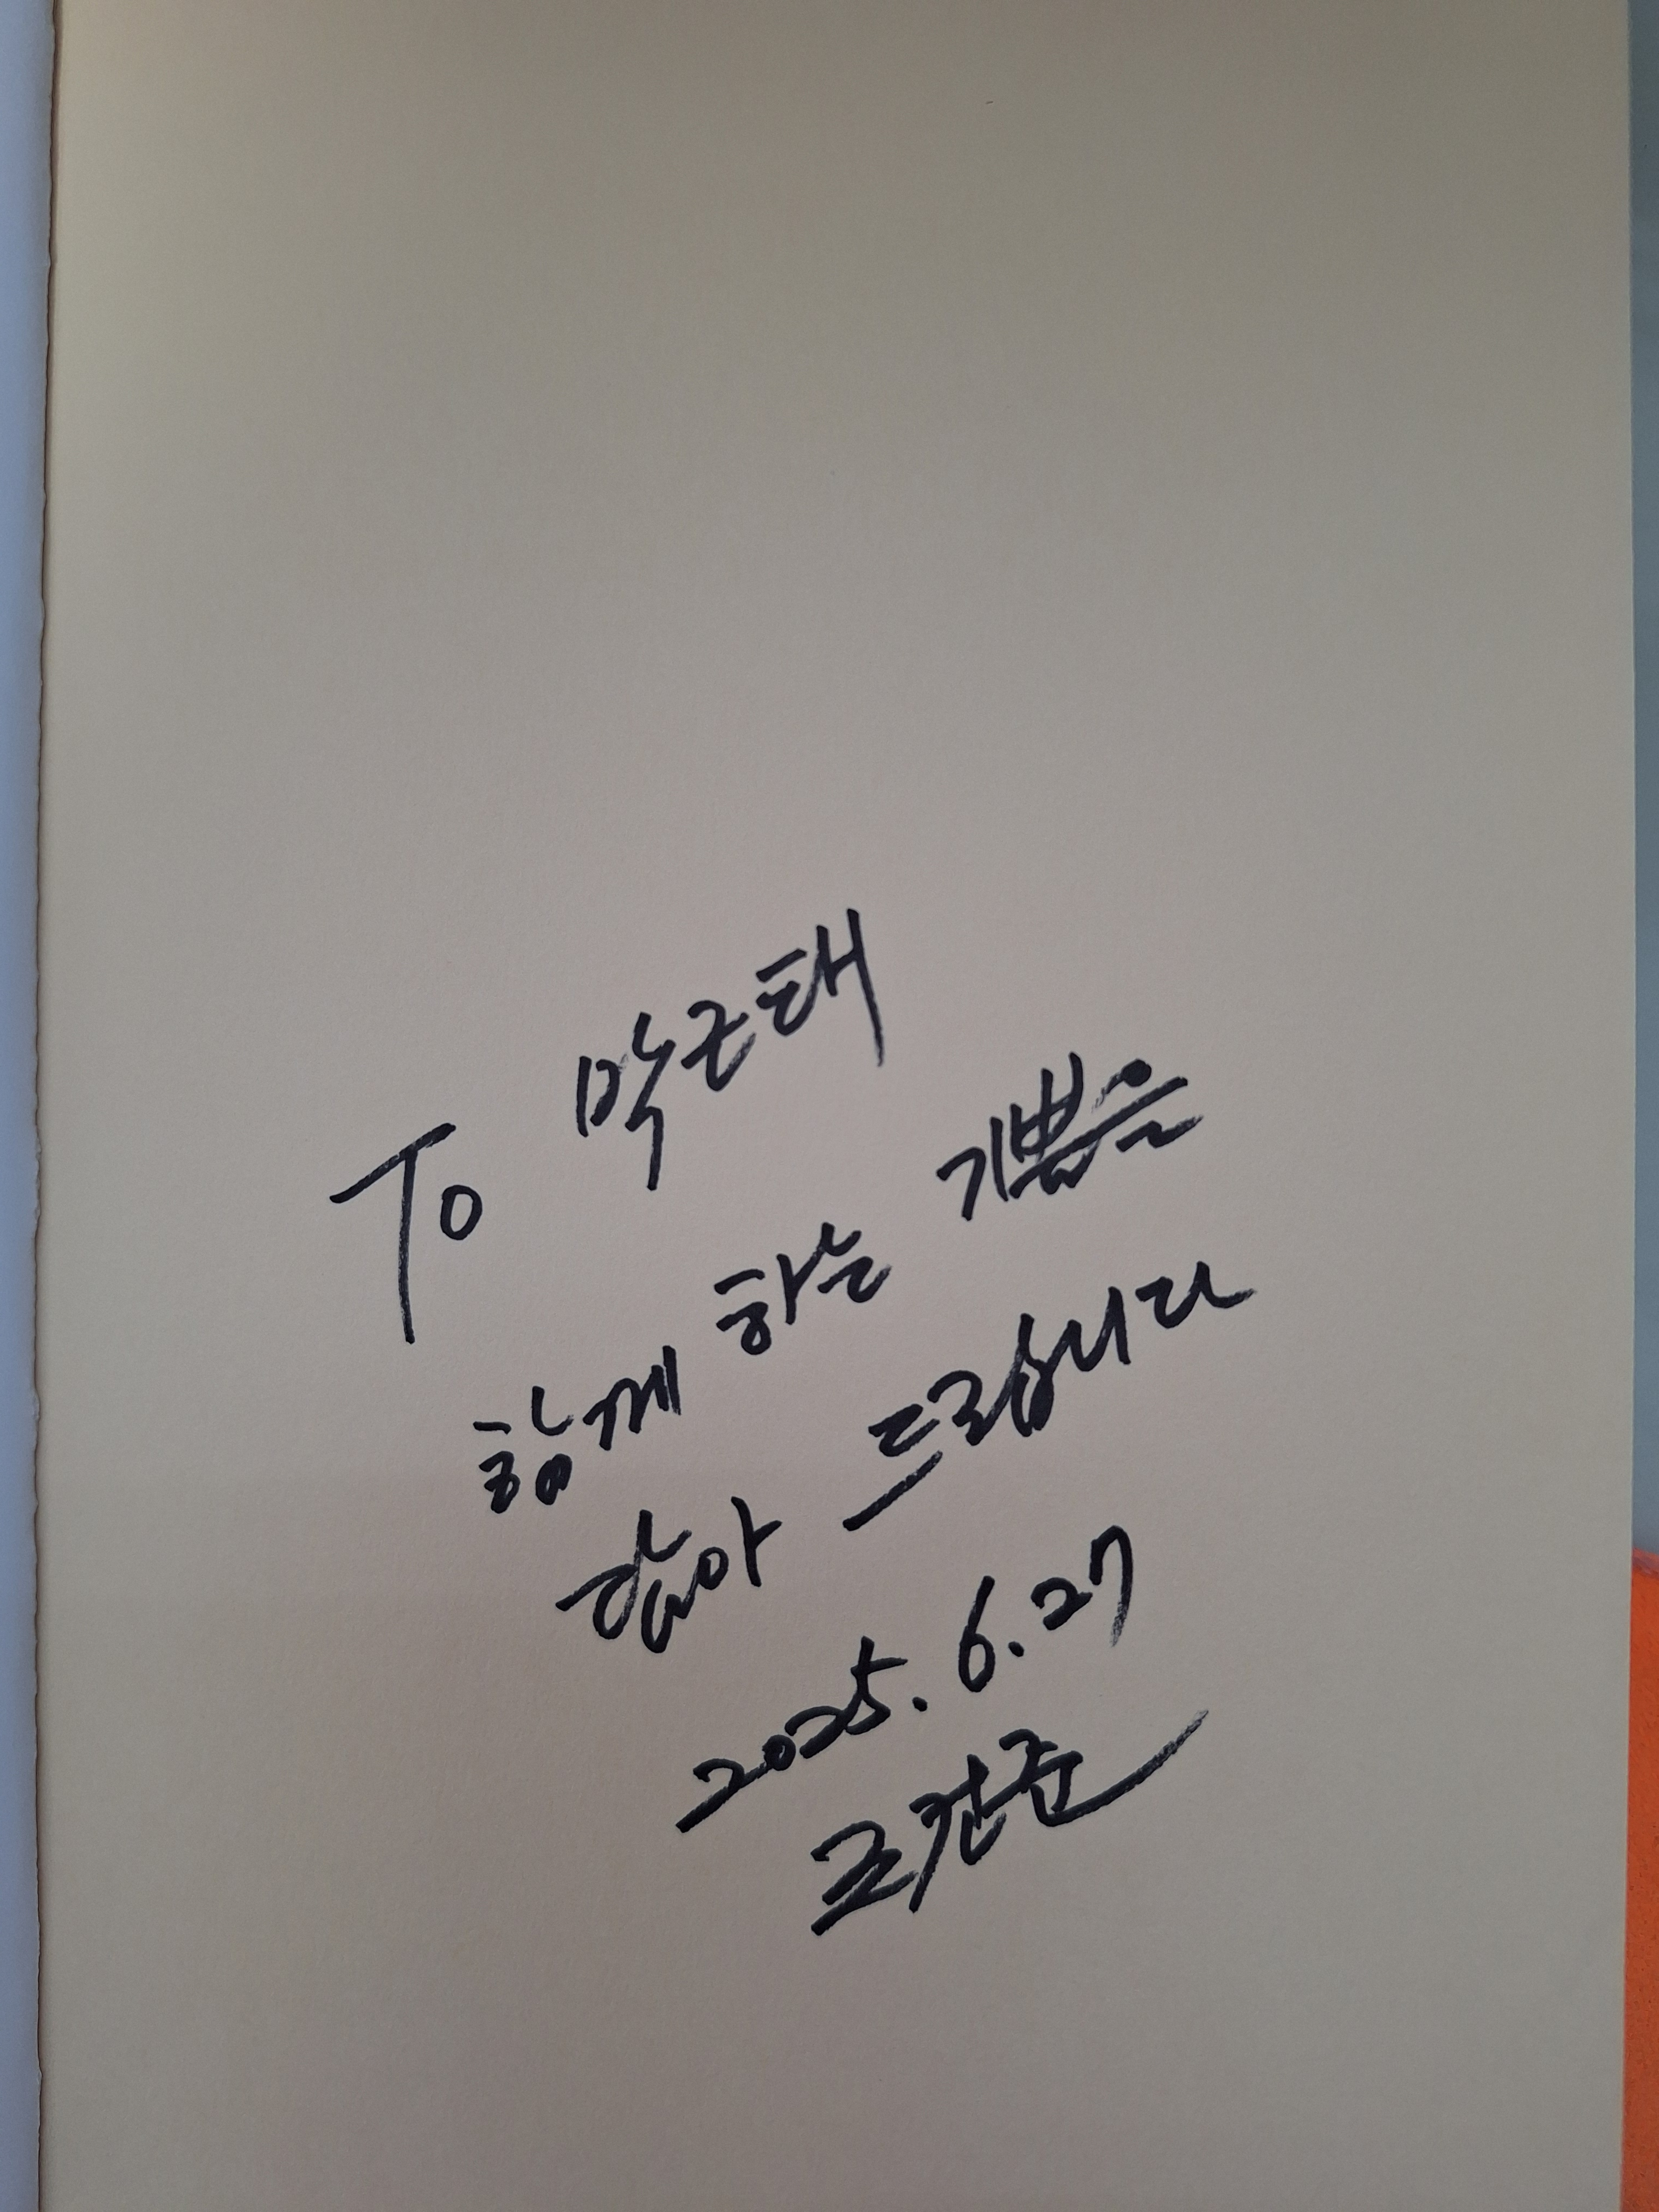 To 박근태
함께 하는 기쁨을
담아 드립니다
2025. 6. 27